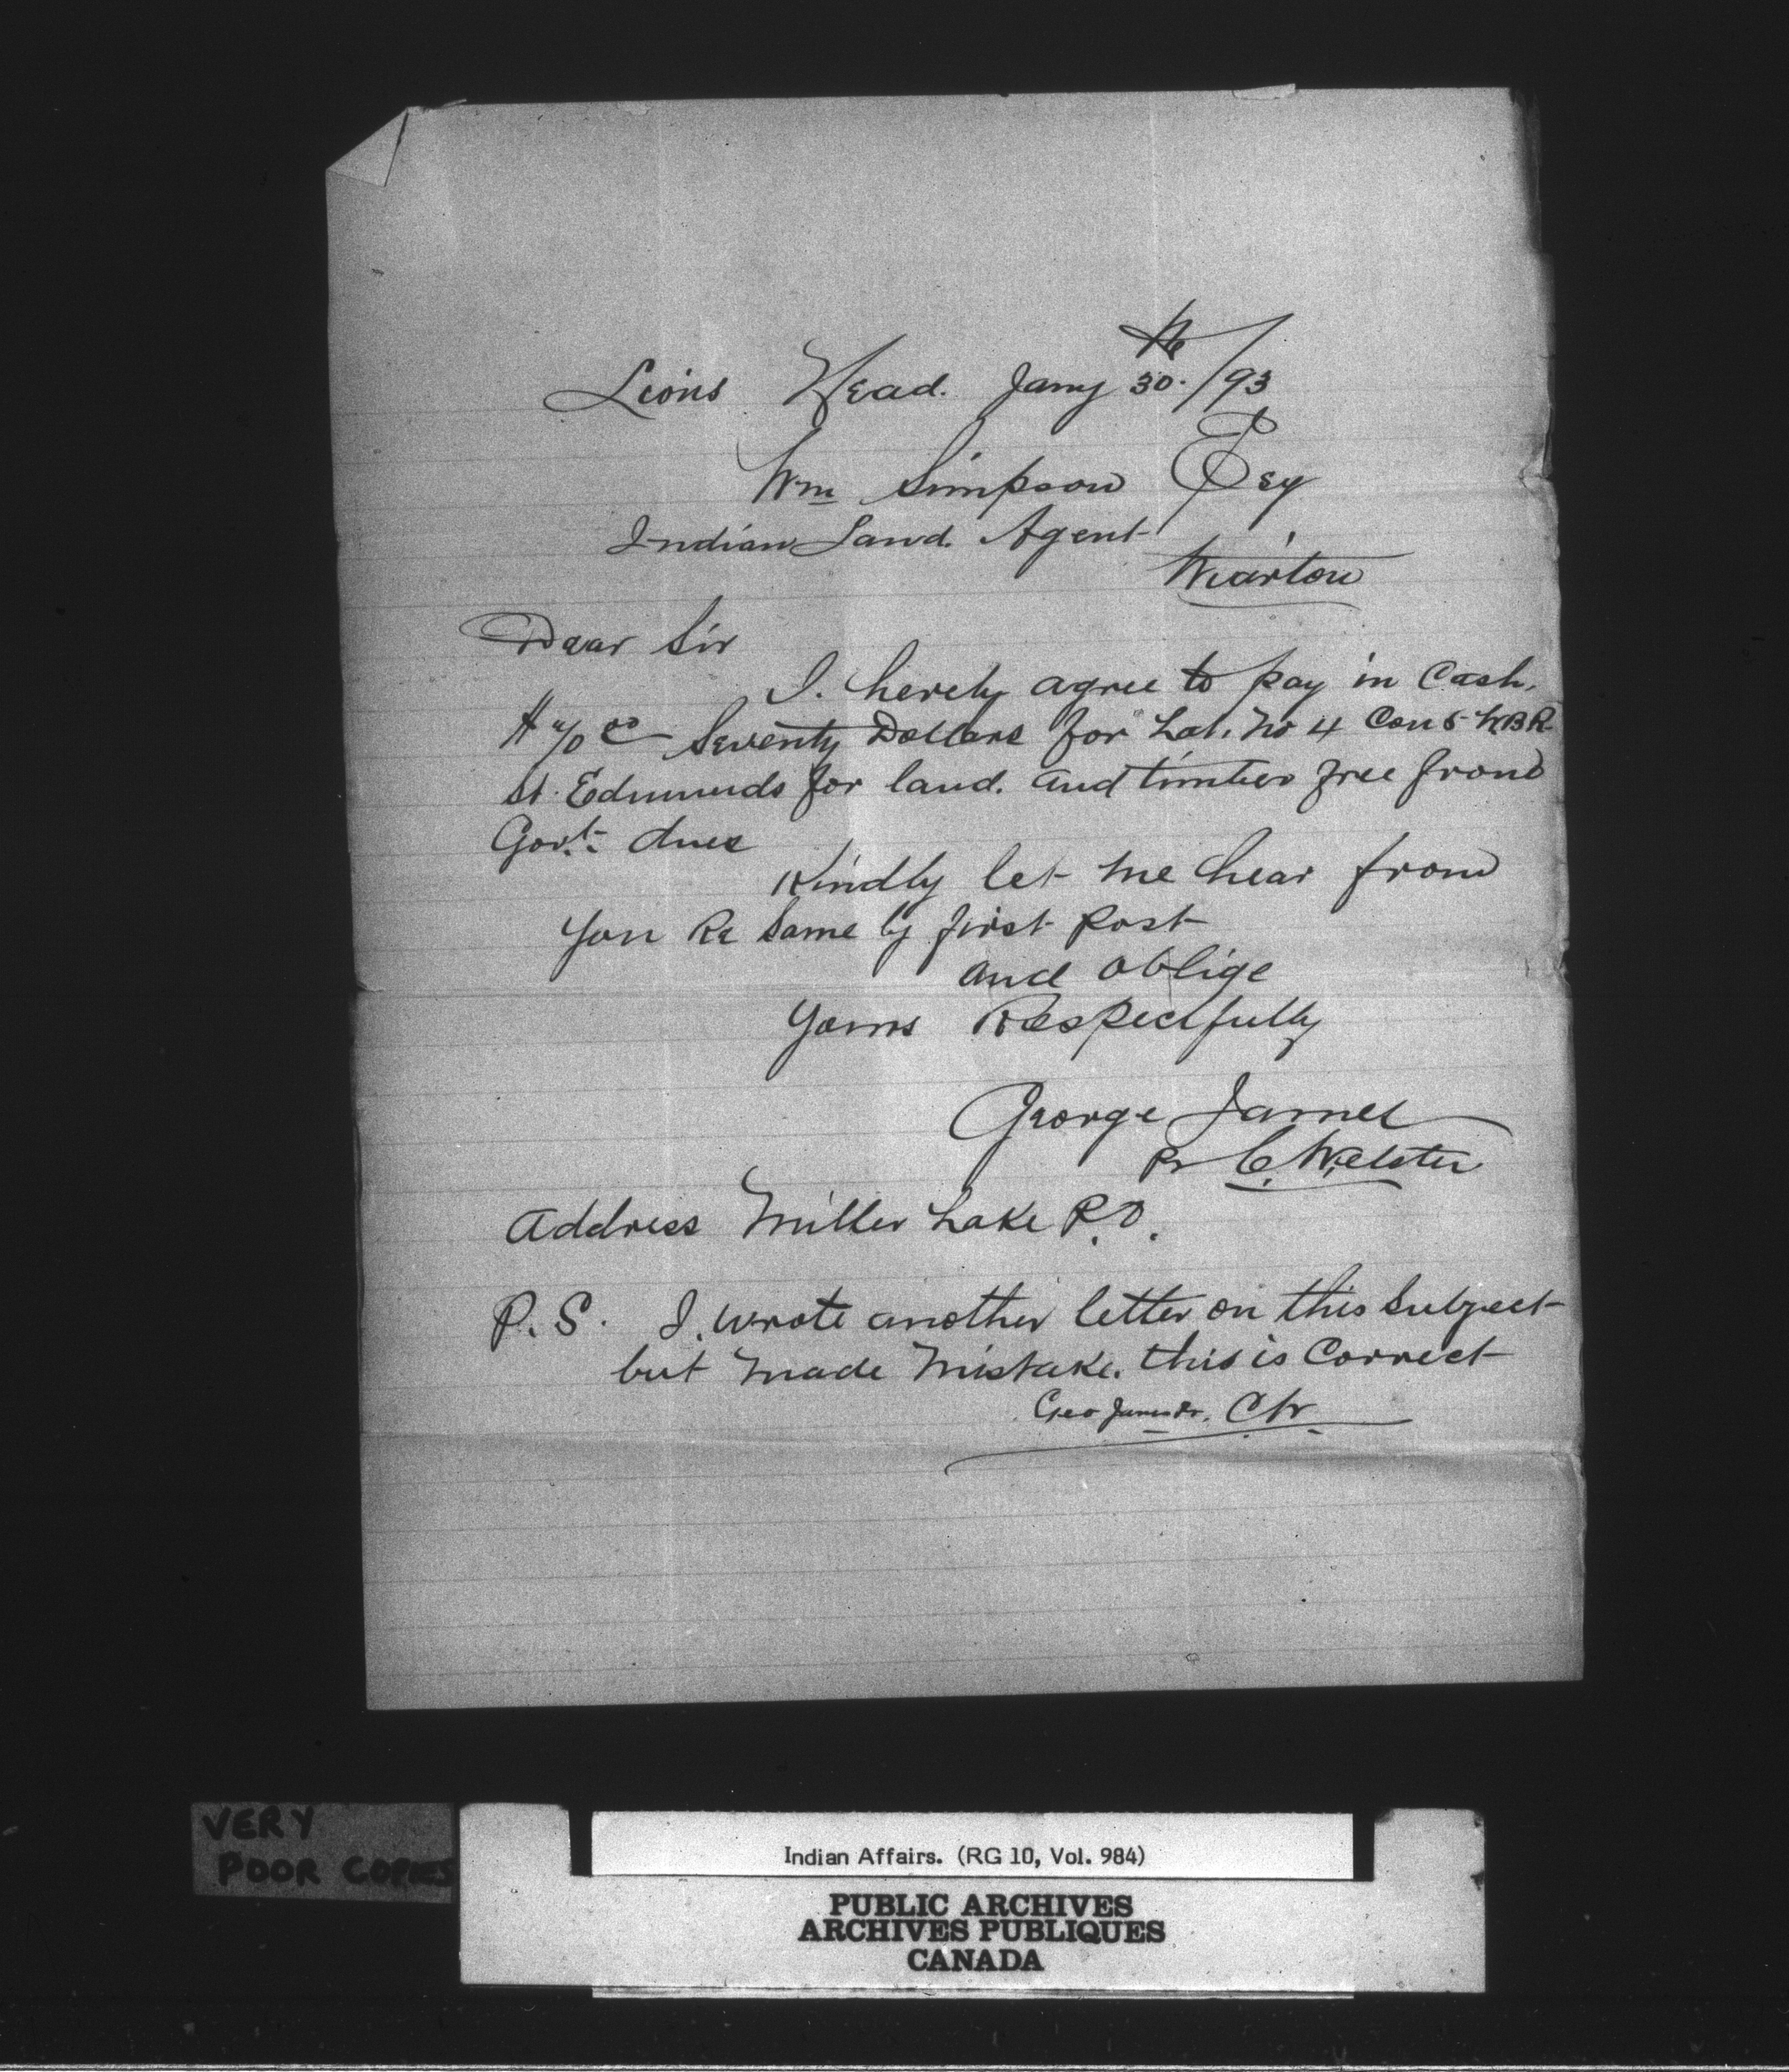 Lions Head. Jany 30th/93
Wm Simpson Esq
Indian Land Agent
Wiarton
Dear Sir
I. hereby agree to pay in Cash.
$70.00 Seventy Dollars for Lot. No 4 Con 5 W.B.R.
St. Edmunds for land. and timber free from
Govt. dues
Kindly let me hear from
you Re Same by first Post
and oblige
Yours Respectfully
George James
Pr C. Webster
Address Miller Lake P.O.
P.S. I. wrote another letter on this Subject
but made mistake. this is Correct
Geo James Pr. C.W.
VERY
POOR COPIES
Indian Affairs. (RG 10, Vol. 984)
PUBLIC ARCHIVES
ARCHIVES PUBLIQUES
CANADA